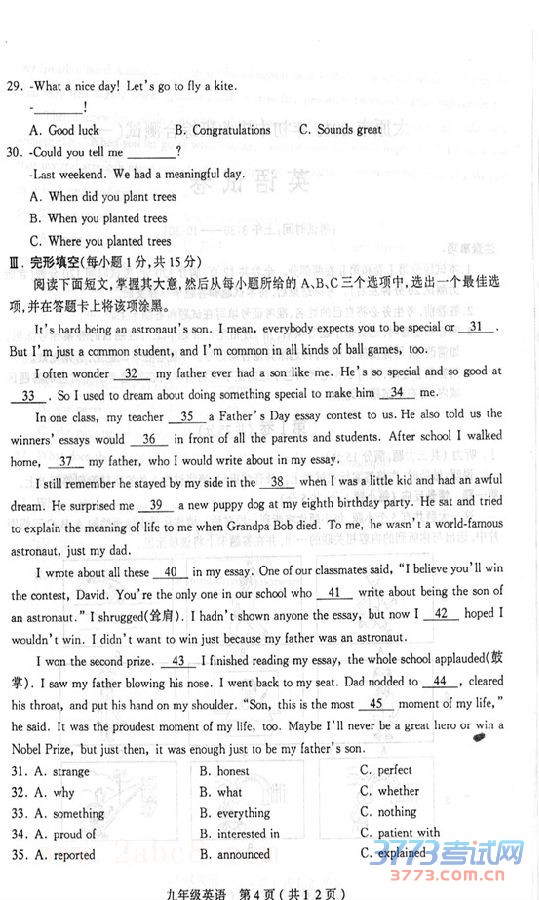 29. -What a nice day! Let's go to fly a kite.
-________!
A. Good luck B. Congratulations C. Sounds great
30. -Could you tell me ________?
-Last weekend. We had a meaningful day.
A. When did you plant trees
B. When you planted trees
C. Where you planted trees
Ⅲ. 完形填空(每小题1分,共15分)
阅读下面短文,掌握其大意,然后从每小题所给的A、B、C三个选项中,选出一个最佳选
项,并在答题卡上将该项涂黑。
It's hard being an astronaut's son. I mean, everybody expects you to be special or 31 .
But I'm just a common student, and I'm common in all kinds of ball games, too.
I often wonder 32 my father ever had a son like me. He's so special and so good at
33 . So I used to dream about doing something special to make him 34 me.
In one class, my teacher 35 a Father's Day essay contest to us. He also told us the
winners' essays would 36 in front of all the parents and students. After school I walked
home, 37 my father, who I would write about in my essay.
I still remember he stayed by my side in the 38 when I was a little kid and had an awful
dream. He surprised me 39 a new puppy dog at my eighth birthday party. He sat and tried
to explain the meaning of life to me when Grandpa Bob died. To me, he wasn't a world-famous
astronaut, just my dad.
I wrote about all these 40 in my essay. One of our classmates said, "I believe you'll win
the contest, David. You're the only one in our school who 41 write about being the son of
an astronaut." I shrugged(耸肩). I hadn't shown anyone the essay, but now I 42 hoped I
wouldn't win. I didn't want to win just because my father was an astronaut.
I won the second prize. 43 I finished reading my essay, the whole school applauded(鼓
掌). I saw my father blowing his nose. I went back to my seat. Dad nodded to 44 , cleared
his throat, and put his hand on my shoulder. "Son, this is the most 45 moment of my life,"
he said. It was the proudest moment of my life, too. Maybe I'll never be a great hero or win a
Nobel Prize, but just then, it was enough just to be my father's son.
31. A. strange B. honest C. perfect
32. A. why B. what C. whether
33. A. something B. everything C. nothing
34. A. proud of B. interested in C. patient with
35. A. reported B. announced C. explained
九年级英语 第4页(共12页)
3773考试网
3773.com.cn